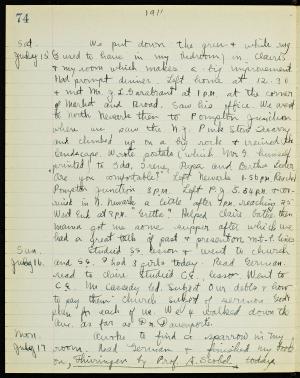 74
1911
Sat. We put down the green & white rug
July 15 I used to have in my bedroom in Claire's
& my room which makes a big improvement
Had prompt dinner. Left home at 12.30
& met Mr. J. L. Garabrant at 1 P.M. at the corner
of Market and Broad. Saw his office. We went
to north Newark then to Pompton Junction
where we saw the N.J. Pink Stone Quarry
and climbed up on a big rock & viewed the
landscape. Wrote postals (which Mr. G himself
printed) to Ida, Irene, Papa, and Bertha
"Are you comfortable?" Left Newark 1.50 P.M. Reached
Pompton Junction 3 P.M. Left P.J. 5.04 P.M. &
in N. Newark a little after 7 P.M. reaching
West End at 8 P.M. Helped Claire bathe then
mama got me some supper after which we
had a great talk of past & present
Sun. Studied S.S. lesson & went to church
July 16. and S.S. I had 3 girls today. Read German.
read to Claire studied C.E. lesson. Went to
C.E. Mr Cassedy led. Subject Our debts & how
to pay them. Church subject of sermon God's
plan for each of us. We 4 walked down the
ave. as far as Dr. Davenports.
Mon. Awoke to find a sparrow in my
July 17 room. Read German & finished my book
on, Thüringen by Prof. A. Scobel today